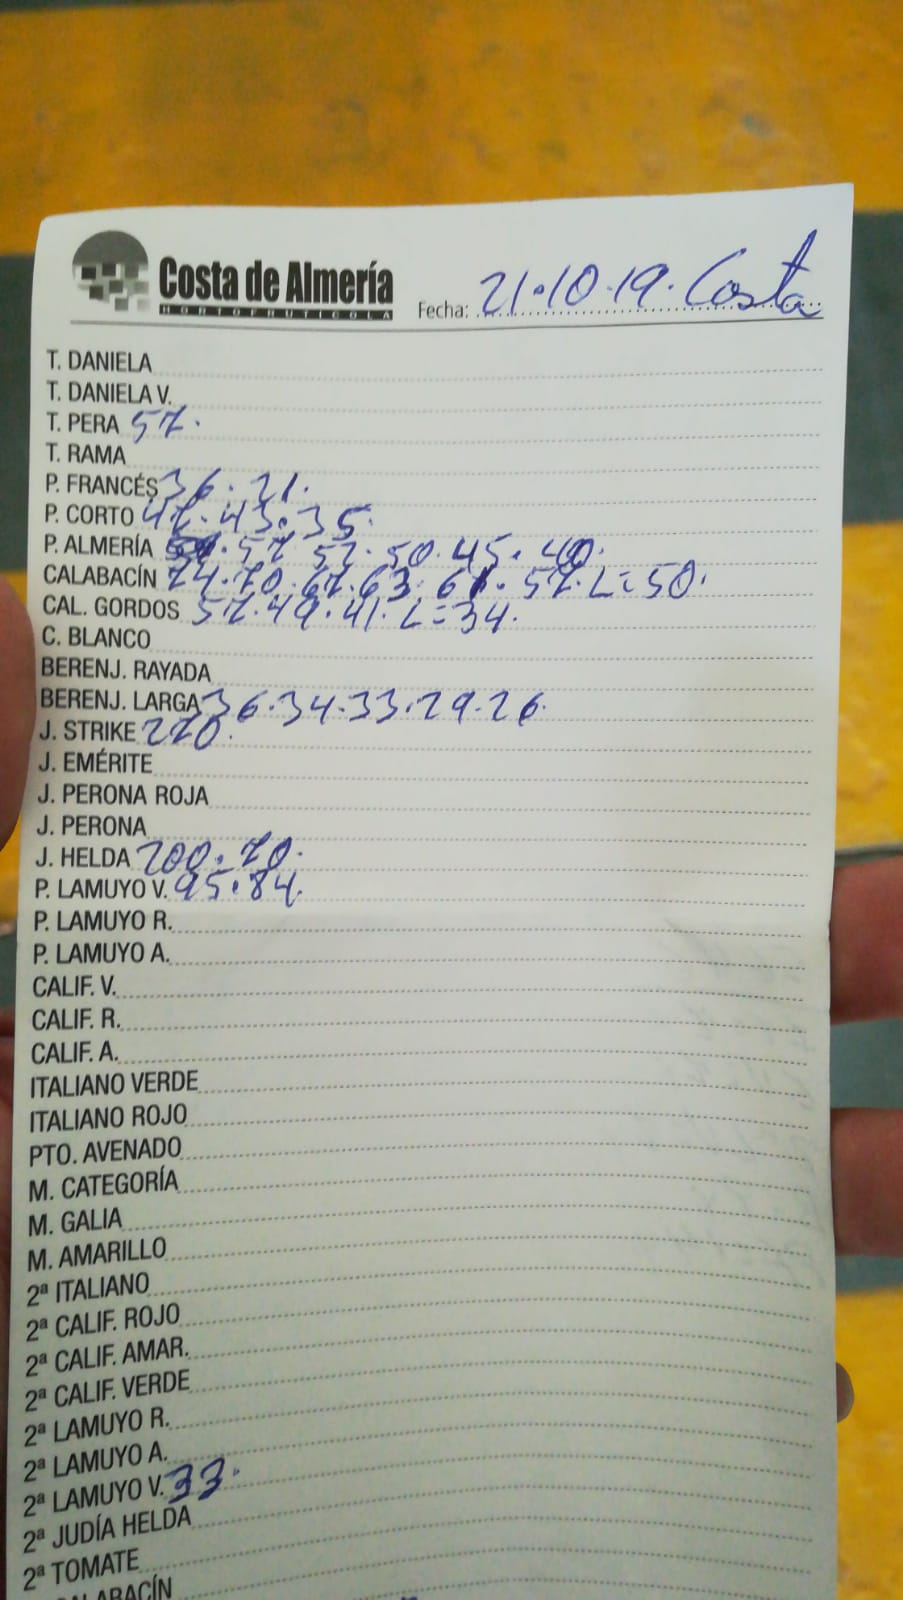 Costa de Almería
HORTOFRUTICOLA
Fecha: 21.10.19. Costa
T. DANIELA
T. DANIELA V.
T. PERA 57.
T. RAMA
P. FRANCÉS 36. 21.
P. CORTO 47. 43. 35.
P. ALMERÍA 57 52. 50. 45. 40.
CALABACÍN 74. 70. 67. 63. 61. 57. L=50.
CAL. GORDOS 57. 49. 41. L=34.
C. BLANCO
BERENJ. RAYADA
BERENJ. LARGA 36. 34. 33. 29. 26.
J. STRIKE 220.
J. EMÉRITE
J. PERONA ROJA
J. PERONA
J. HELDA 200. 70.
P. LAMUYO V. 95. 84.
P. LAMUYO R.
P. LAMUYO A.
CALIF. V.
CALIF. R.
CALIF. A.
ITALIANO VERDE
ITALIANO ROJO
PTO. AVENADO
M. CATEGORÍA
M. GALIA
M. AMARILLO
2ª ITALIANO
2ª CALIF. ROJO
2ª CALIF. AMAR.
2ª CALIF. VERDE
2ª LAMUYO R.
2ª LAMUYO A.
2ª LAMUYO V. 33.
2ª JUDÍA HELDA
2ª TOMATE
CALABACÍN